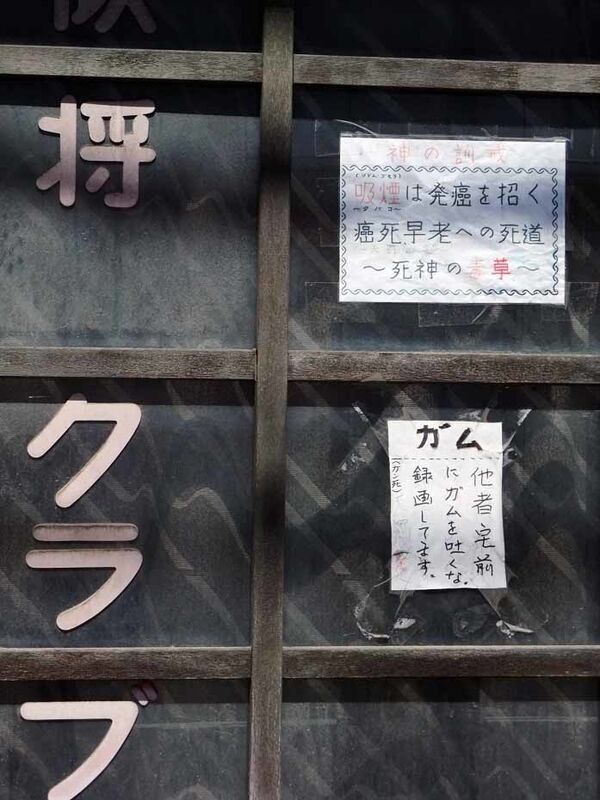 将
クラブ
神の訓戒
吸煙は発癌を招く
～タバコ～
癌死早老への死道
～死神の毒草～
ガム
他者宅前
にガムを吐くな。
録画してます。